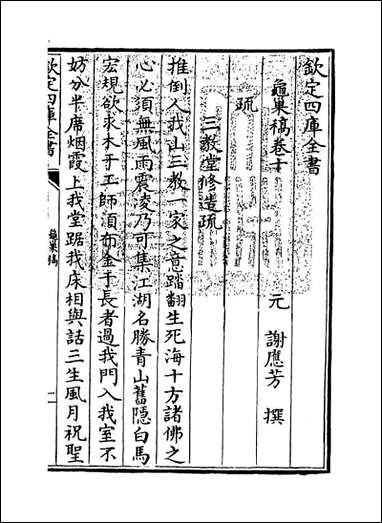 欽定四庫全書
龜巢稿卷十
元 謝應芳 撰
疏
三教堂修造疏
推倒人我山三教一家之意踏翻生死海十方諸佛之
心必須無風雨震凌乃可集江湖名勝青山舊隱白馬
宏規欲求木于工師須布金于長者過我門入我室不
妨分半席烟霞上我堂踞我床相與話三生風月祝聖
欽定四庫全書
龜巢稿